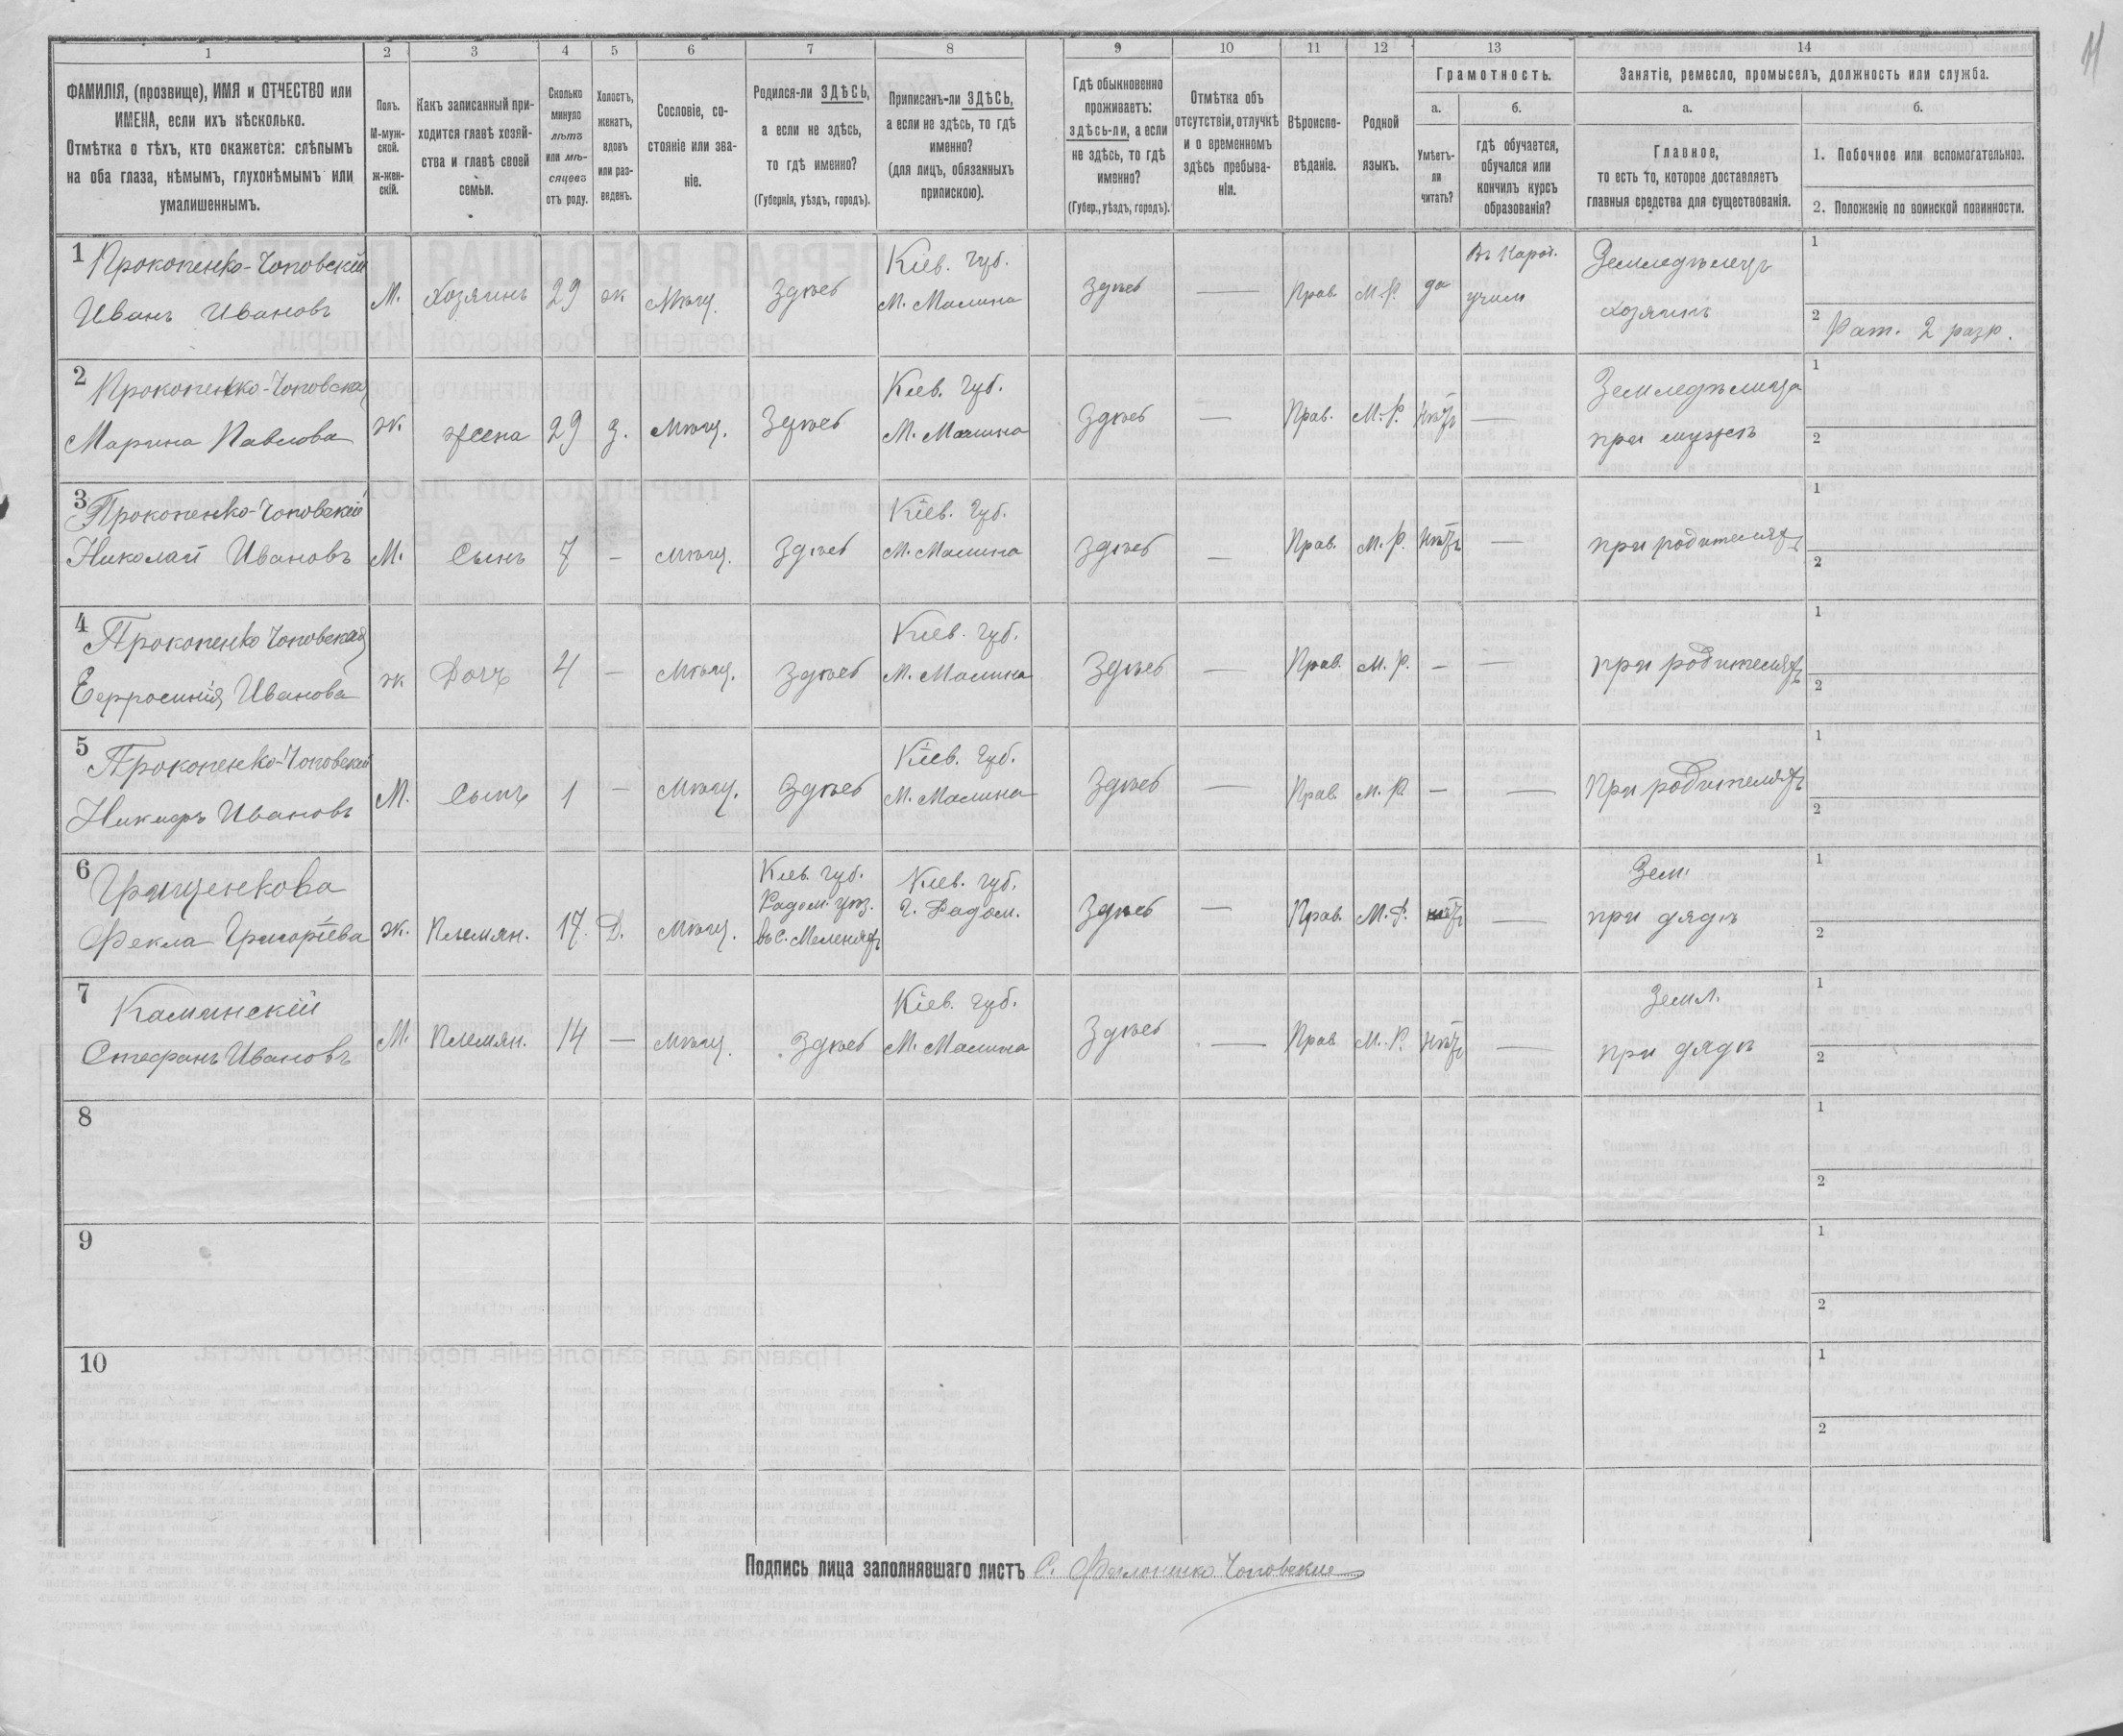 1 2 3 4 5 6 7 8 9 10 11 12 13 14
ФАМИЛІЯ, (прозвище), ИМЯ и ОТЧЕСТВО или
ИМЕНА, если ихъ нѣсколько.
Отмѣтка о тѣхъ, кто окажется: слѣпымъ
на оба глаза, нѣмымъ, глухонѣмымъ или
умалишеннымъ.
Полъ.
М-муж-
ской.
ж-жен-
скій.
Какъ записанный при-
ходится главѣ хозяй-
ства и главѣ своей
семьи.
Сколько
минуло
лѣтъ
или мѣ-
сяцевъ
отъ роду.
Холостъ,
женатъ,
вдовъ
или раз-
веденъ.
Сословіе, со-
стояніе или зва-
ніе.
Родился-ли ЗДѢСЬ,
а если не здѣсь,
то гдѣ именно?
(Губернія, уѣздъ, городъ).
Приписанъ-ли ЗДѢСЬ,
а если не здѣсь, то гдѣ
именно?
(для лицъ, обязанныхъ
припискою).
Гдѣ обыкновенно
проживаетъ:
здѣсь-ли, а если
не здѣсь, то гдѣ
именно?
(Губер., уѣздъ, городъ).
Отмѣтка объ
отсутствіи, отлучкѣ
и о временномъ
здѣсь пребыва-
ніи.
Вѣроиспо-
вѣданіе.
Родной
языкъ.
Грамотность.
а.
Умѣетъ-
ли
читать?
б.
гдѣ обучается,
обучался или
кончилъ курсъ
образованія?
Занятіе, ремесло, промыселъ, должность или служба.
а.
Главное,
то есть то, которое доставляетъ
главныя средства для существованія.
б.
1. Побочное или вспомогательное.
2. Положеніе по воинской повинности.
1 Прокопенко-Чоповскій Кіев. губ. Въ Народ. Земледѣлецъ 1
Иванъ Ивановъ М. Хозяинъ 29 ж Мѣщ. Здѣсь М. Малина Здѣсь — Прав. М.Р. да учил хозяинъ 2 Рат. 2 разр.
2 Прокопенко-Чоповская Кіев. губ. Земледѣлица 1
Марина Павлова ж. жена 29 з. Мѣщ. Здѣсь М. Малина Здѣсь — Прав. М.Р. нѣтъ — при мужѣ 2
3 Прокопенко-Чоповскій Кіев. губ. 1
Николай Ивановъ М. Сынъ 7 — Мѣщ. Здѣсь М. Малина Здѣсь — Прав. М.Р. нѣтъ — при родителяхъ 2
4 Прокопенко Чоповская Кіев. губ. 1
Евфросинія Иванова ж Дочь 4 — Мѣщ. Здѣсь М. Малина Здѣсь — Прав. М.Р. — — при родителяхъ 2
5 Прокопенко-Чоповскій Кіев. губ. 1
Никифръ Ивановъ М. Сынъ 1 — Мѣщ. Здѣсь М. Малина Здѣсь — Прав. М.Р. — — При родителяхъ 2
6 Грищенкова Кіев. губ. Кіев. губ. Зем. 1
Радом. уѣз. Г. Радом.
Фекла Григоріева ж. Племян. 17. Д. Мѣщ. въ с. Меленяхъ Здѣсь — Прав. М.Р. нѣтъ — при дядѣ 2
7 Каминскій Кіев. губ. Земл. 1
Стефанъ Ивановъ М. Племян. 14 — Мѣщ. Здѣсь М. Малина Здѣсь — Прав. М.Р. нѣтъ — при дядѣ 2
8 1
2
9 1
2
10 1
2
Подпись лица заполнявшаго листъ С. Чоповскій